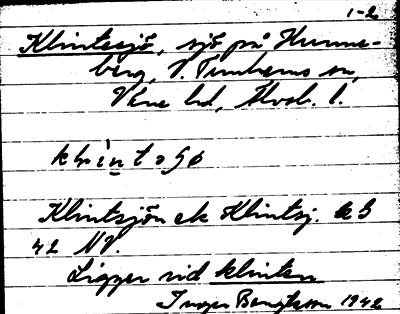 1-2
Klintesjö, sjö på Hunne-
berg, V. Tunhems sn,
Väne hd, Älvsb. l.
Klintsjön ek Klintsj.
42 NV.
Ligger vid klinten
Inger Bengtsson 1942